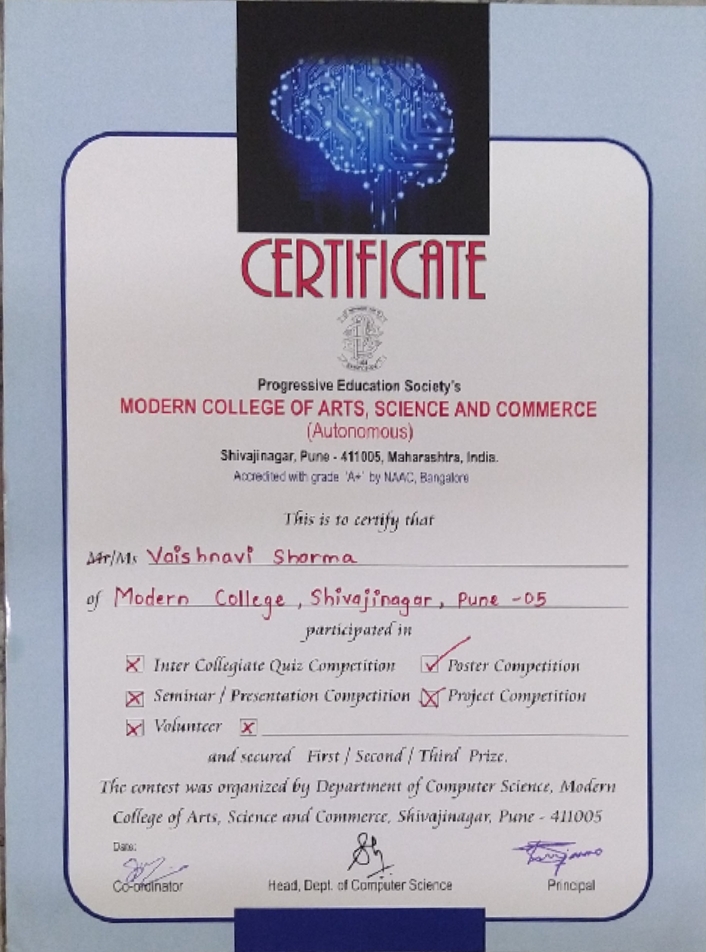 CERTIFICATE
Progressive Education Society's
MODERN COLLEGE OF ARTS, SCIENCE AND COMMERCE
(Autonomous)
Shivajinagar, Pune - 411005, Maharashtra, India.
Accredited with grade 'A+' by NAAC, Bangalore
This is to certify that
Mr/Ms Vaishnavi Sharma
of Modern College, Shivajinagar, Pune -05
participated in
Inter Collegiate Quiz Competition Poster Competition
Seminar / Presentation Competition Project Competition
Volunteer
and secured First / Second / Third Prize.
The contest was organized by Department of Computer Science, Modern
College of Arts, Science and Commerce, Shivajinagar, Pune - 411005
Date:
Co-ordinator Head, Dept. of Computer Science Principal